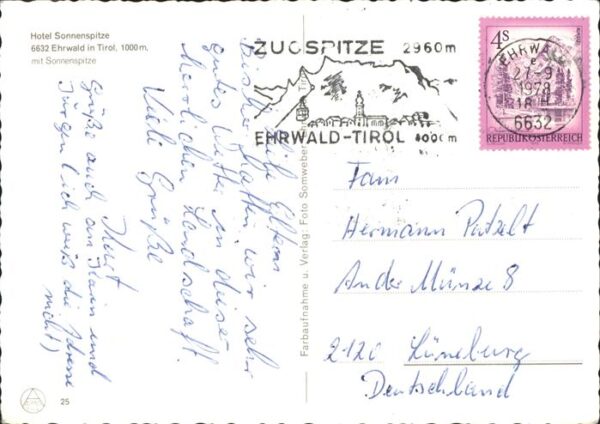 Hotel Sonnenspitze
6632 Ehrwald in Tirol, 1000 m,
mit Sonnenspitze
Liebe Eltern
Bisher hatten wir sehr
gutes Wetter in dieser
Herrlichen Landschaft.
Viele Grüße
Kurt
Grüße auch an und
Jürgen (ich weiß die Adresse
nicht)
25
Farbaufnahme u. Verlag: Foto Somweber
Tirol
ZUGSPITZE 2960m
EHRWALD-TIROL 1000m
EHRWALD
27.-9.
1978
18
6632
4S
REPUBLIK ÖSTERREICH
Fam
Hermann Patzelt
An der Münze 8
2120 Lüneburg
Deutschland